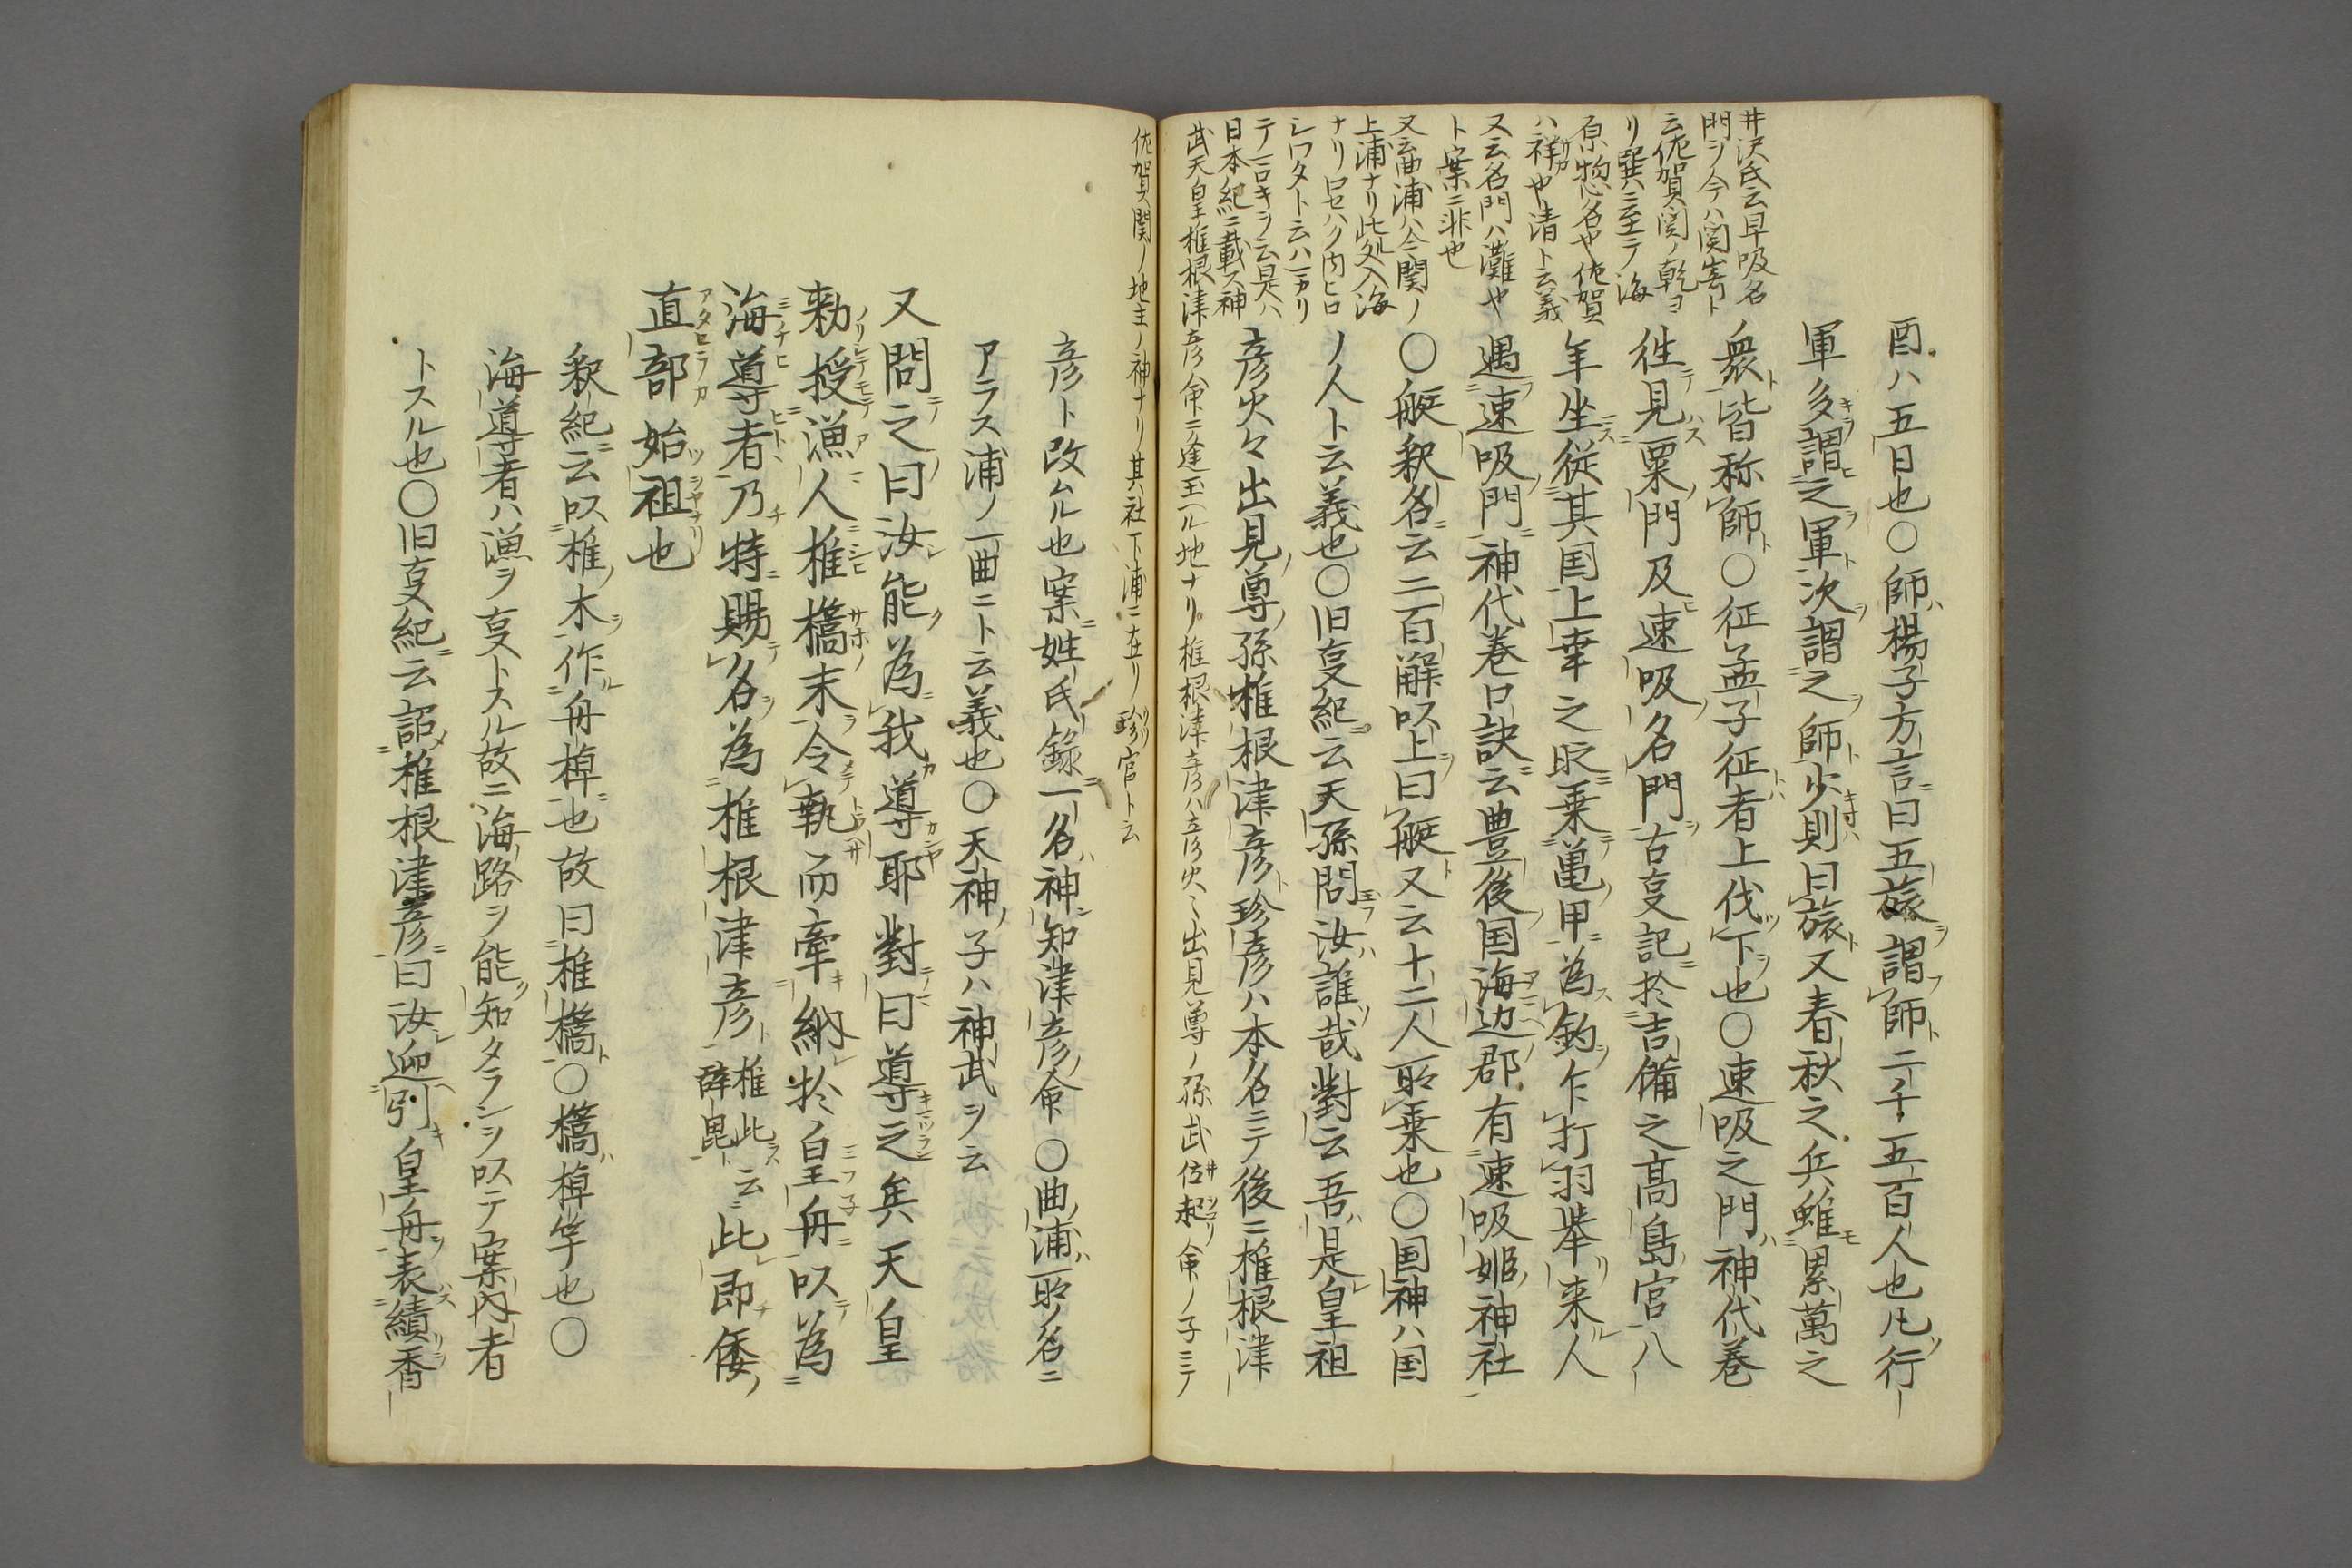 酉ハ五日也〇師揚子方言曰五旅謂師二千五百人也凡行
軍多謂之軍次謂之師少則曰旅又春秋之兵雖累萬之
衆皆称師〇征孟子征者上伐下也〇速吸之門神代巻
徃見粟門及速吸名門古事記於吉備之髙島宮八
年坐従其国上幸之時乗亀甲為釣乍打羽挙来人
遇速吸門神代巻口訣云豊後国海辺郡有速吸姫神社
〇艇釈名云二百斛以上曰艇又云十二人所乗也〇国神ハ国
ノ人ト云義也〇旧事紀云天孫問汝誰哉對云吾是皇祖
彦火々出見尊孫椎根津彦珍彦ハ本名ニテ後ニ椎根津
井沢氏云早吸名
門ヲ今ハ関嵜ト
云佐賀関ノ乾ヨ
リ巽ニ至テ海
原惣名也佐賀
ハ祥也清ト云義
又云名門ハ灘也
ト案ニ非也
又云曲浦ハ今関ノ
上浦ナリ此処入海
ナリ口セハク内ヒロ
シワタト云ハマカリ
テヒロキヲ云是ハ
日本紀ニ載ス神
武天皇椎根津彦命ニ逢玉ヘル地ナリ椎根津彦ハ彦火々出見尊ノ孫武位起命ノ子ニテ
佐賀関ノ地主ノ神ナリ其社下浦ニ在リ珍官ト云
彦ト改ムル也案姓氏録一名神知津彦命〇曲浦所ノ名ニ
アラス浦ノ一曲ニト云義也〇天神ノ子ハ神武ヲ云
又問之曰汝能為我導耶對曰導之矣天皇
勅授漁人椎檮末令執而牽納於皇舟以為
海導者乃特賜名為椎根津彦椎此云辞毘此即倭
直部始祖也
釈紀云以椎木作舟棹也故曰椎檮〇檮棹竿也〇
海導者ハ漁ヲ事トスル故ニ海路ヲ能知タランヲ以テ案内者
トスル也〇旧事紀云詔椎根津彦曰汝迎引皇舟表績香